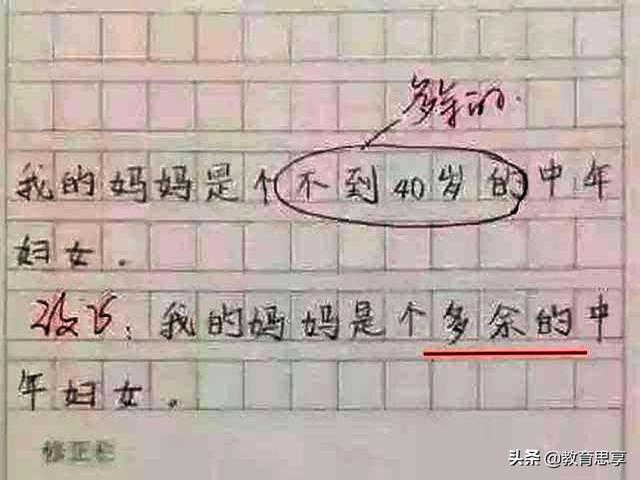 多余的.
我的妈妈是个不到40岁的中年
妇女.
改正:我的妈妈是个多余的中
年妇女.
修正栏
头条 @教育思享